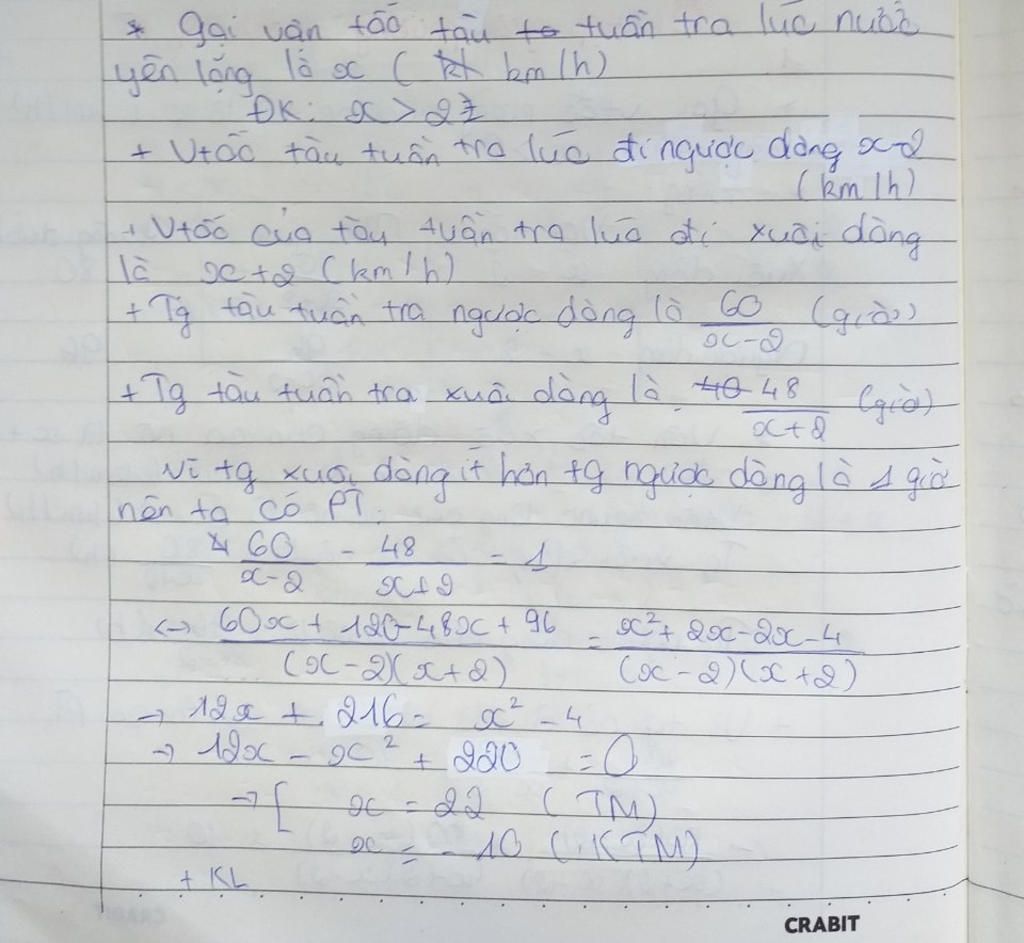 * Gọi vận tốc tàu tuần tra lúc nước
yên lặng là x ( km/h)
ĐK: x > 2
+ Vtốc tàu tuần tra lúc đi ngược dòng x-2
(km/h)
+ Vtốc của tàu tuần tra lúc đi xuôi dòng
là x+2 (km/h)
+ Tg tàu tuần tra ngược dòng là 60/(x-2) (giờ)
+ Tg tàu tuần tra xuôi dòng là 48/(x+2) (giờ)
Vì tg xuôi dòng ít hơn tg ngược dòng là 1 giờ
nên ta có PT
60/(x-2) - 48/(x+2) = 1
<-> (60x + 120 - 48x + 96)/((x-2)(x+2)) = (x² + 2x - 2x - 4)/((x-2)(x+2))
→ 12x + 216 = x² - 4
→ 12x - x² + 220 = 0
→ [ x = 22 (TM)
x = -10 (KTM)
+ KL
CRABIT